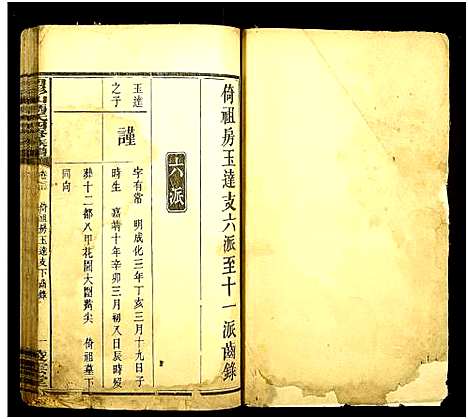 倚祖房玉達支六派至十一派齒錄
六派
玉達
之子
謹
字有常 明成化三年丁亥三月十九日子
時生 嘉靖十年辛卯三月初八日辰時歿
葬十二都八甲花園大園嘴尖 倚祖墓下
同向
倚祖房玉達支下齒錄